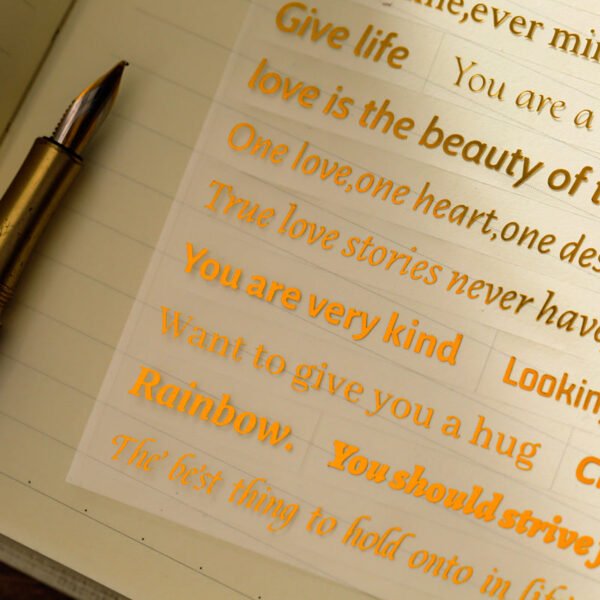 ever min
Give life
You are a
love is the beauty of
One love,one heart,one des
True love stories never have
You are very kind
Looking
Want to give you a hug
Rainbow.
You should strive
The best thing to hold onto in life